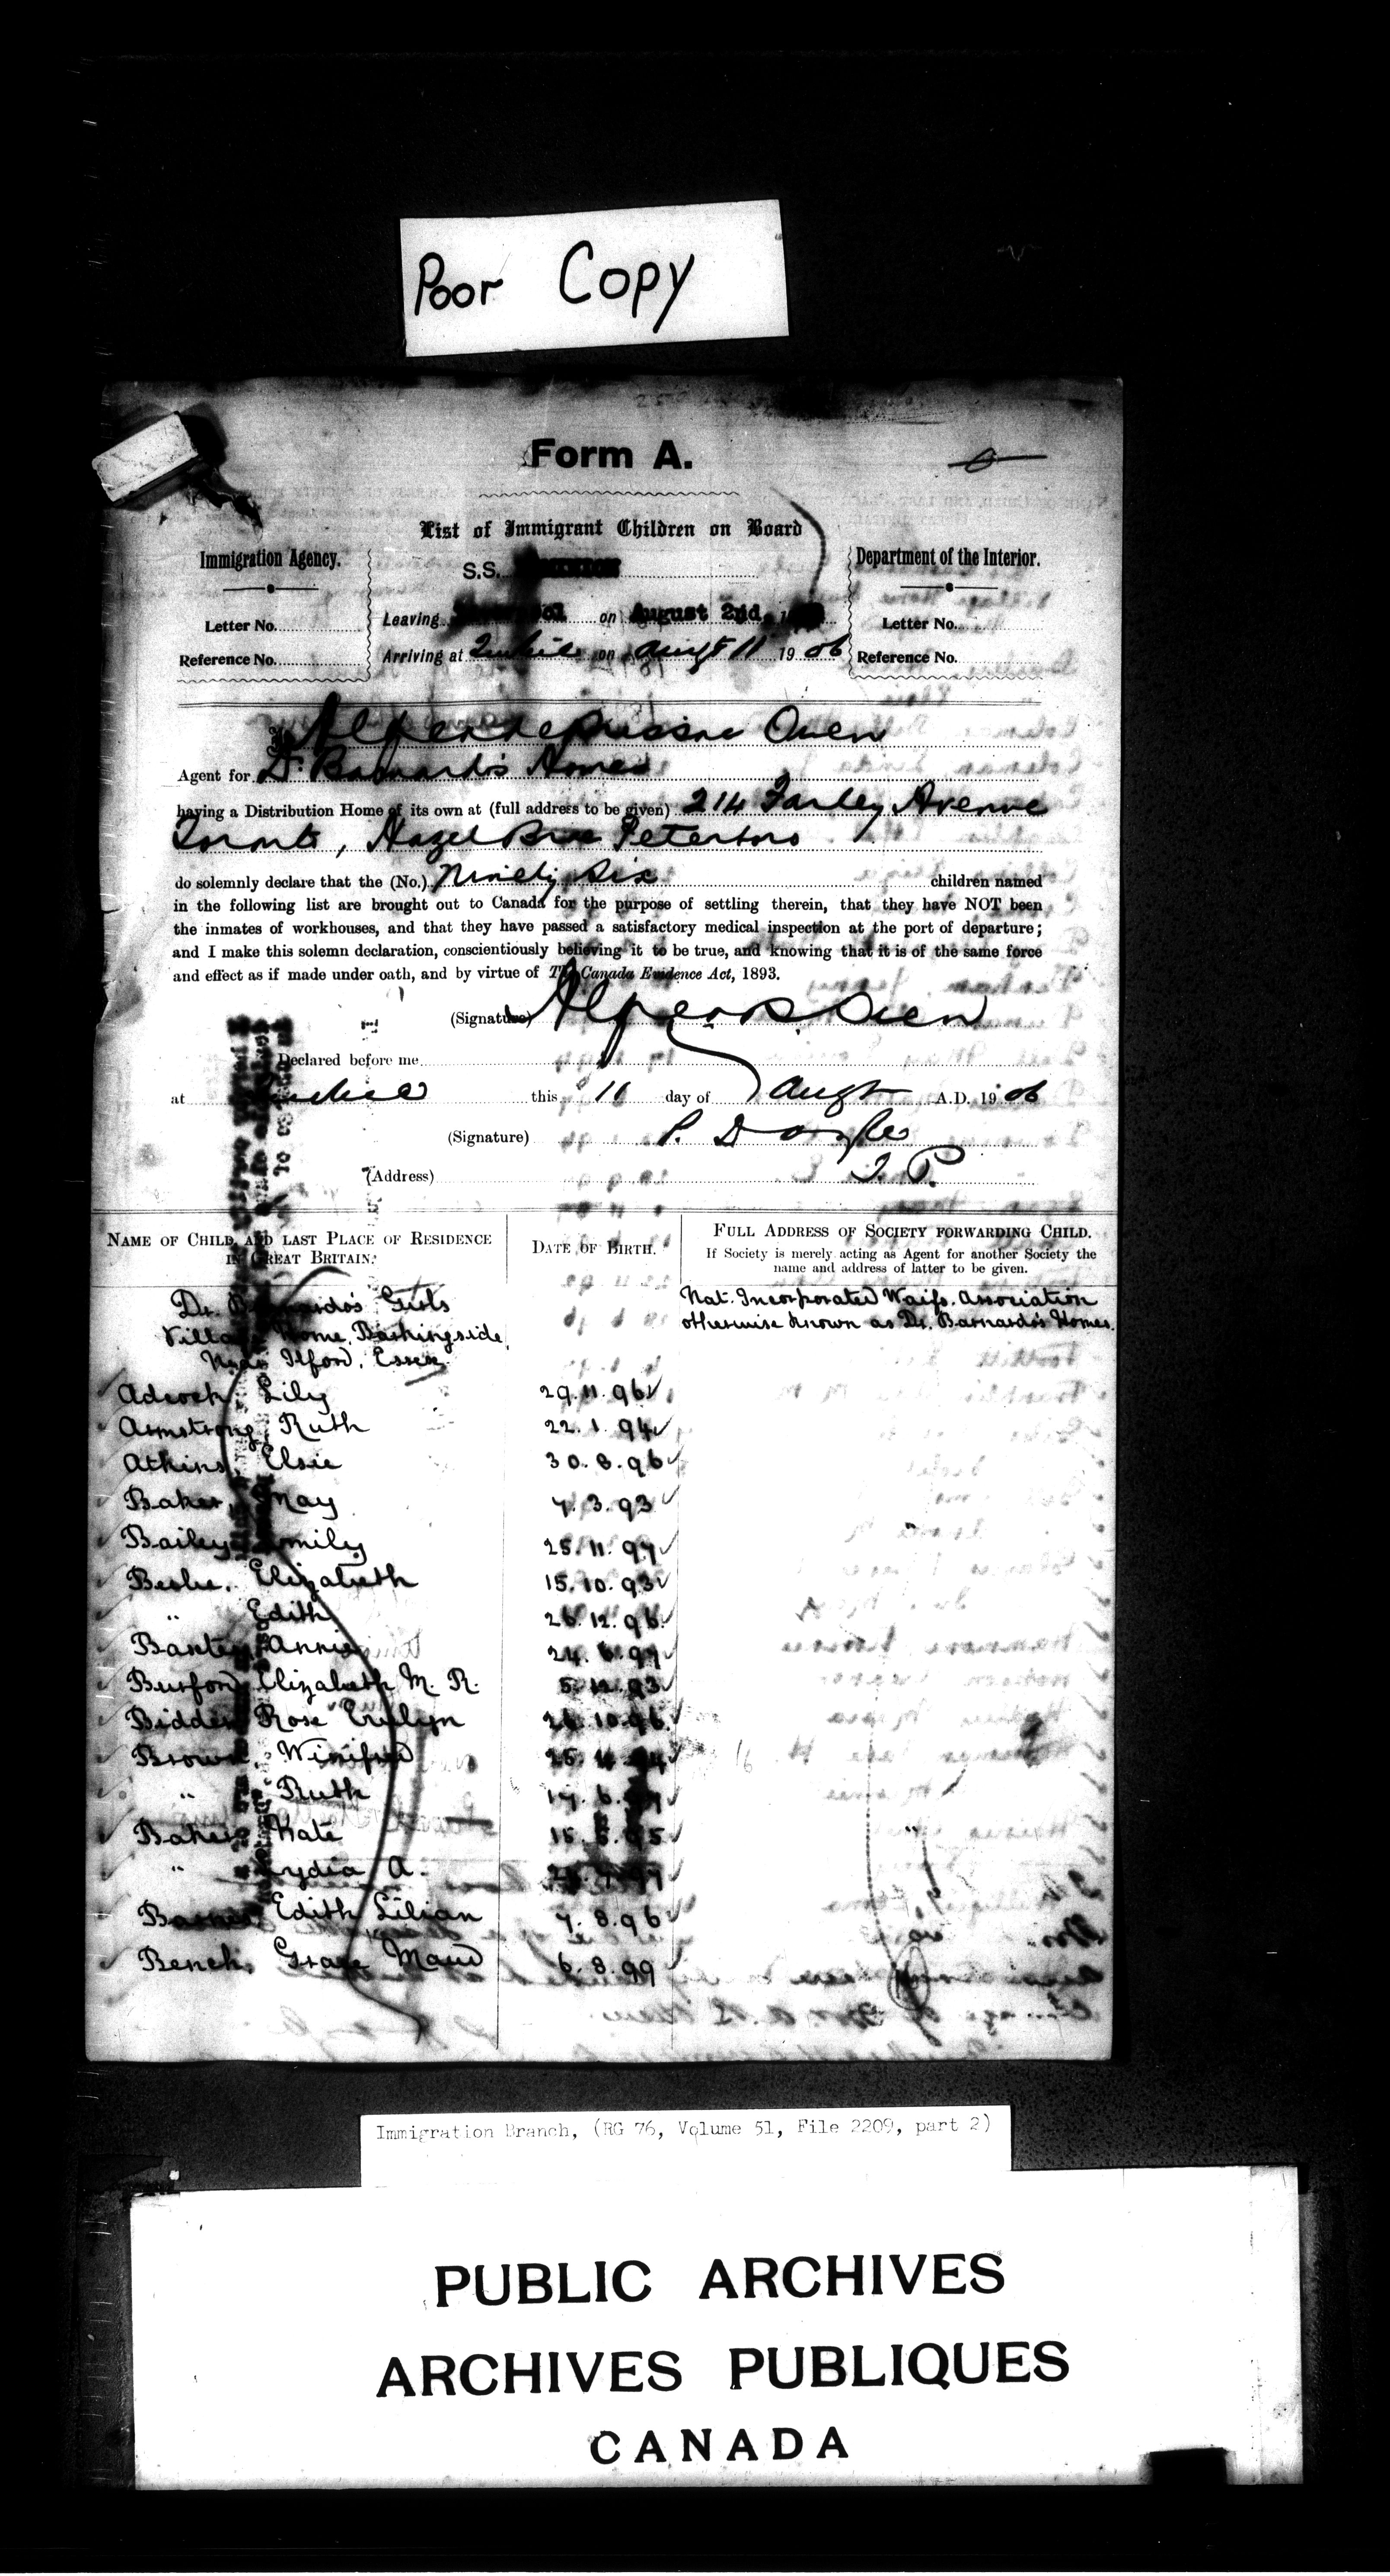 Poor Copy
Form A.
List of Immigrant Children on Board
Immigration Agency.
Letter No.
Reference No.
S.S.
Leaving on August 2nd, 19
Arriving at Quebec on Augst 11 1906
Department of the Interior.
Letter No.
Reference No.
I, Owen
Agent for Dr. Barnardo's Homes
having a Distribution Home of its own at (full address to be given) 214 Farley Avenue
Toronto, Hazel Brae Peterboro
do solemnly declare that the (No.) Ninety Six children named
in the following list are brought out to Canada for the purpose of settling therein, that they have NOT been
the inmates of workhouses, and that they have passed a satisfactory medical inspection at the port of departure;
and I make this solemn declaration, conscientiously believing it to be true, and knowing that it is of the same force
and effect as if made under oath, and by virtue of The Canada Evidence Act, 1893.
(Signature) Owen
Declared before me
at Quebec this 11 day of Augst A.D. 1906
(Signature) P. Doyle
(Address) J. P.
NAME OF CHILD, AND LAST PLACE OF RESIDENCE
IN GREAT BRITAIN.
DATE OF BIRTH.
FULL ADDRESS OF SOCIETY FORWARDING CHILD.
If Society is merely acting as Agent for another Society the
name and address of latter to be given.
Dr. Barnardo's Girls
Village Home, Barkingside,
Near Ilford, Essex.
Nat. Incorporated Waifs. Association
otherwise known as Dr. Barnardo's Homes.
Adcock, Lily 29.11.96
Armstrong, Ruth 22.1.94
Atkins, Elsie 30.8.96
Baker, May 7.3.93
Bailey Emily 25.11.97
Elizabeth 15.10.93
" Edith 26.12.96
Baxter, Annie 24.6.97
Burford, Elizabeth M. R. 5.12.93
Rose Evelyn 26.10.96
Brown, Winifred
" Ruth
Baker, Kate
" Lydia A.
Edith Lilian 7.8.96
Bench, Grace Maud 6.8.99
Immigration Branch, (RG 76, Volume 51, File 2209, part 2)
PUBLIC ARCHIVES
ARCHIVES PUBLIQUES
CANADA